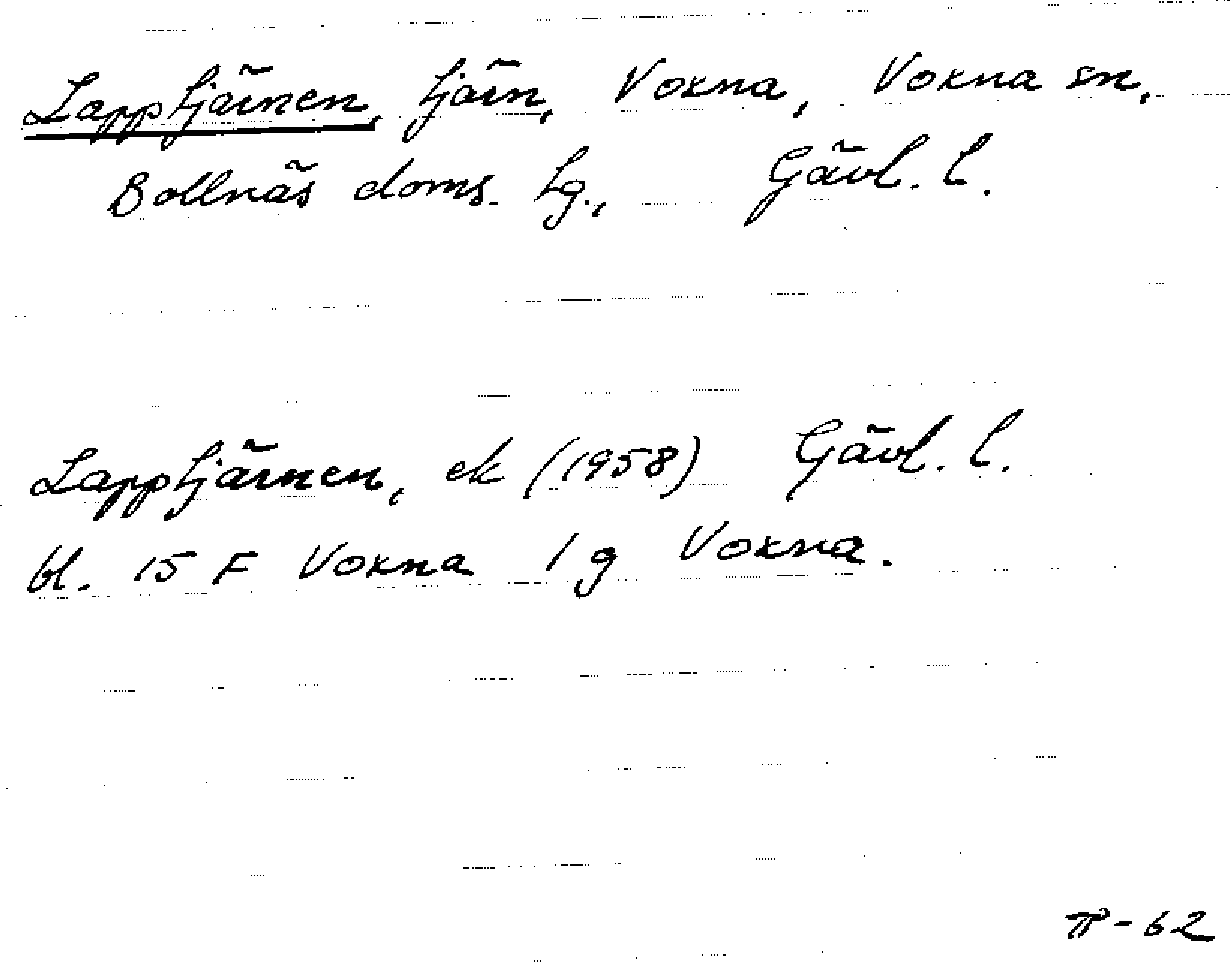 Lapptjärnen, tjärn, Voxna, Voxna sn,
Bollnäs doms. tg., Gävl. l.
Lapptjärnen, ek (1958) Gävl. l.
bl. 15 F Voxna 1 g Voxna.
-62